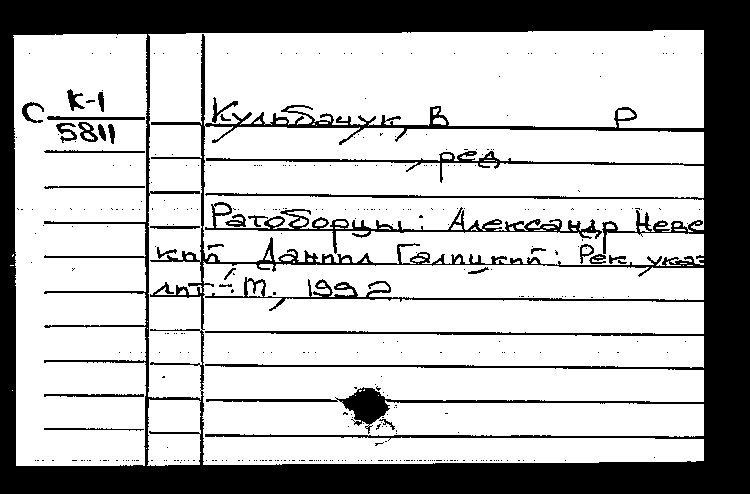 С К-1
5811
Кульбачук, В Р
, ред.
Ратоборцы: Александр Невс
кий, Даниил Галицкий: Рек. указ
лит.- М., 1992